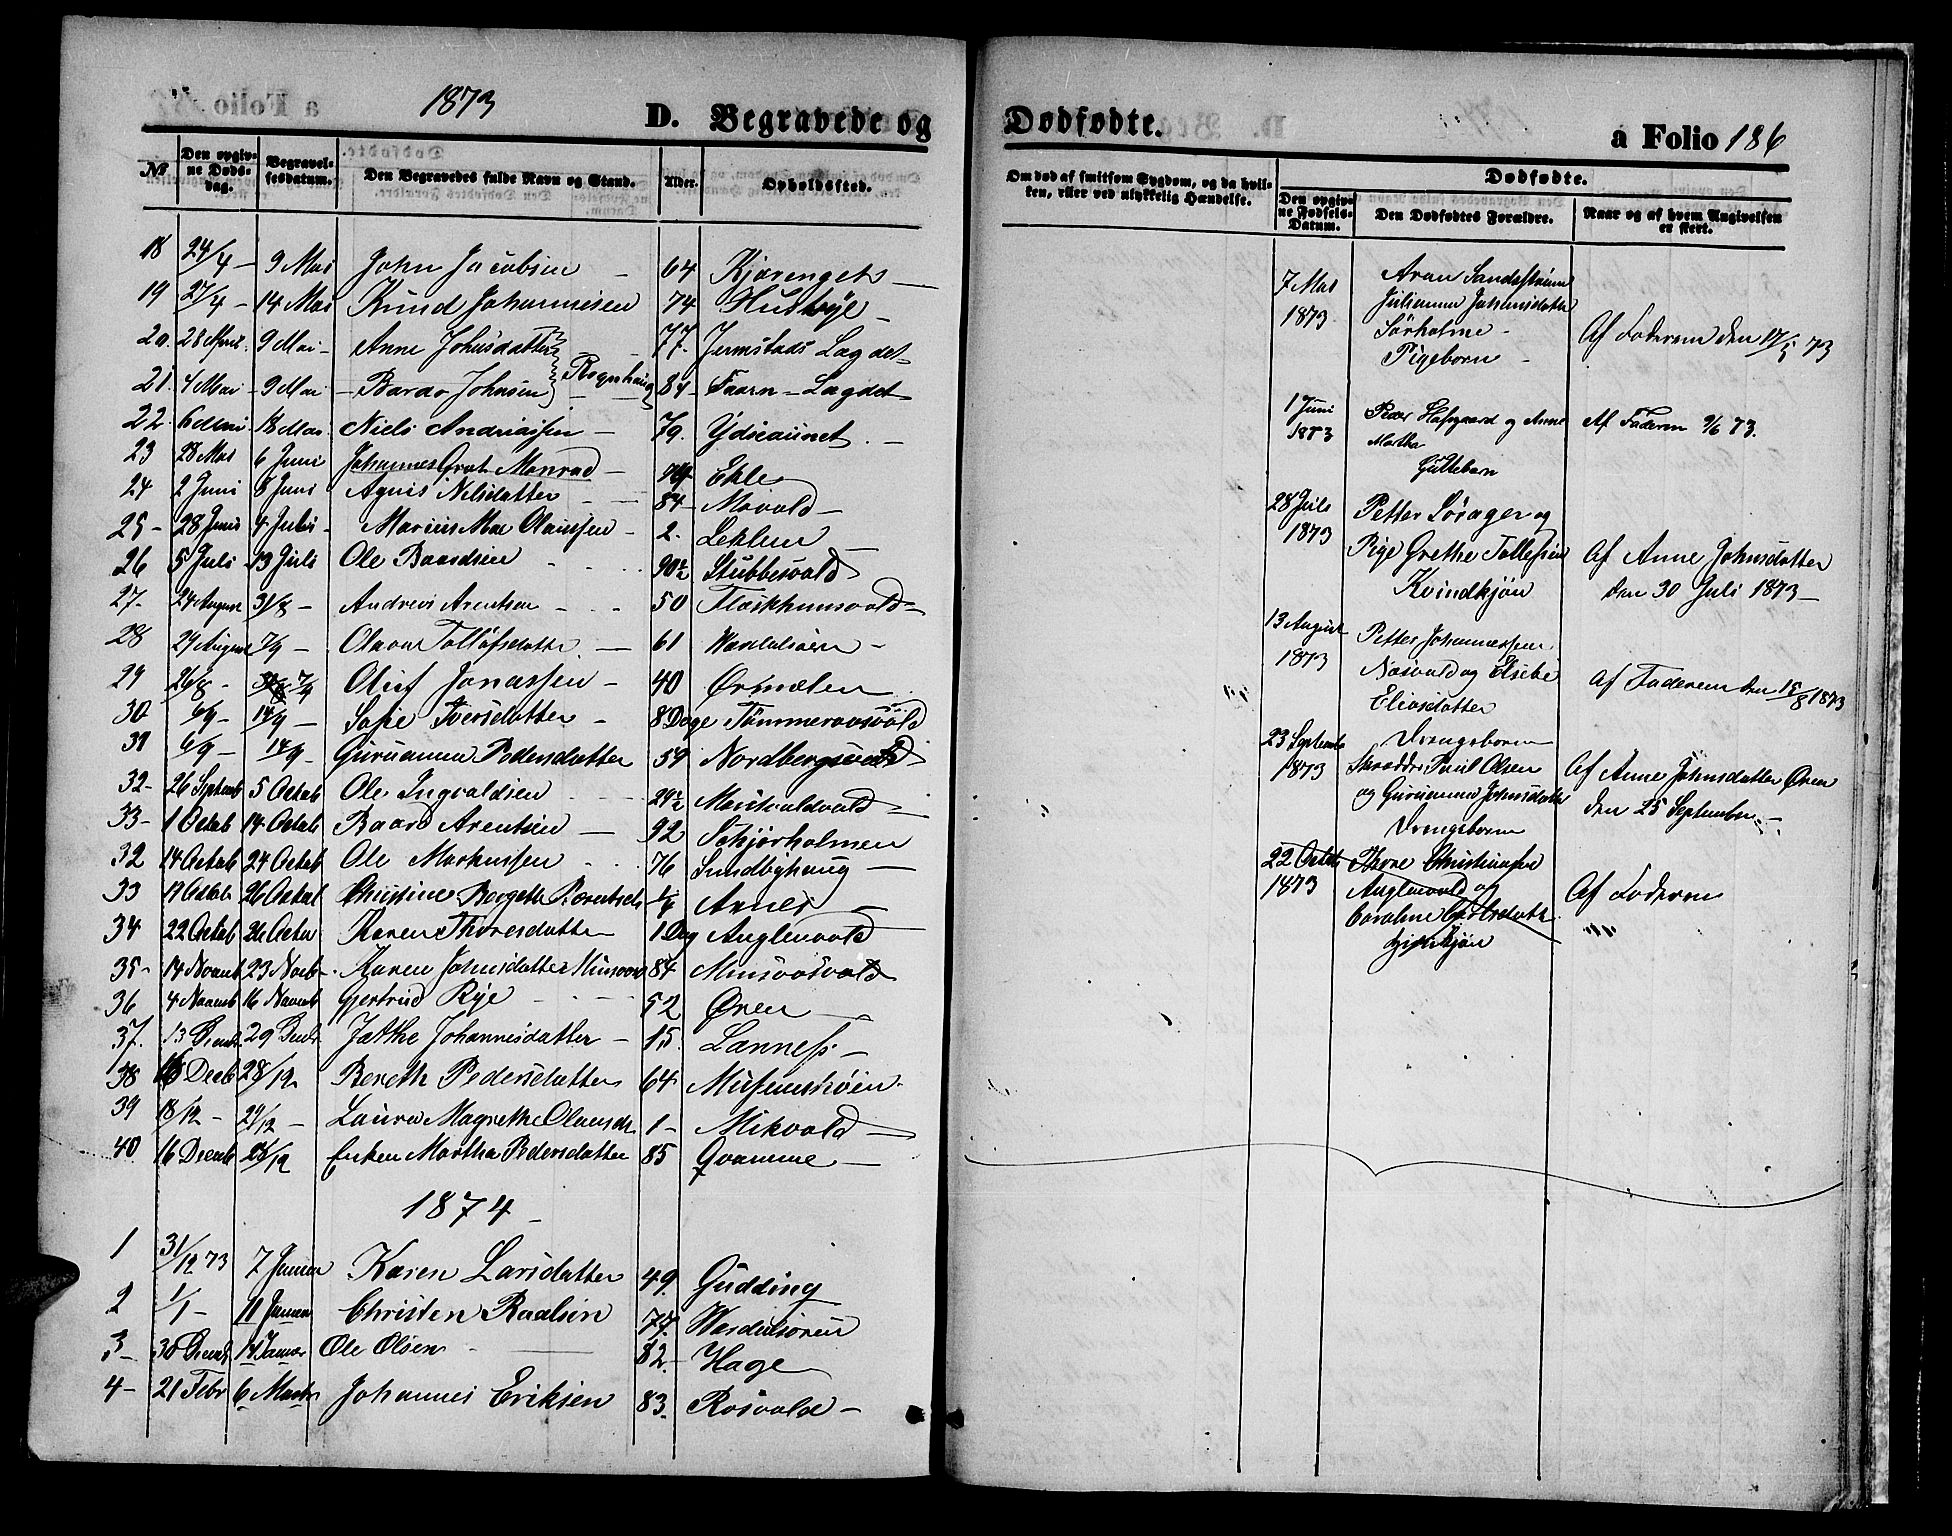 1873 D. Begravede og
Dødfødte. a Folio 186
No Den opgivne Dødsdag. Begravelsesdatum. Den Begravedes fulde Navn og Stand. Alder. Opholdssted.
18 24/4 - 9 Mai John Jacobsen - 64 Kjærenget
19 27/4 - 14 Mai Knud Johannesen 74 Husbye -
20. 28 April 9 Mai - Anne Johnsdatter 77. Jermstads Lagdet
21. 4 Mai 9 Mai - Bardo Johnsen Rognhaug 84 - Faarn - Lagdet
22. 6 Mai 18 Mai Niels Andriassen - 79. Ydseaunet -
23 28 Mai 6 Juni Johannes Monrad - Ekle
24 2 Juni 8 Juni Agnis Nilsdatter - 84 - Movald -
25 - 28 Juni 4 Juli - Marius Olaussen - 2. Leklem
26 5 Juli 13 Juli Ole Baardsen 90½ Stubbesvald
27 - 24 August 31/8 - Andreas Arentsen - 50
28 29 August 7/9 - Tollofsdatter - 61 -
29 26/8 - 7/9 Oluf Jonassen - 40 Ørmælen
30 - 6/9 - 14/9 - Sofie Iversdatter - 8 Dage
31 6/9 - 14/9 - Guruanna Pedersdatter 59 Nordbergsvald
32 - 26 Septemb 5 Octob Ole Ingvaldsen
33 - 1 Octob 14 Octob Baard Arentsen - 92
32 14 Octob 24 Octob Ole Markussen 76 Sundbyhaug -
33 26 Octob Christine Bergeth ¼
34 22 Octob 26 Octo Karen Thoresdatter 1 Dag Auglenvald
35 - 14 Novemb 23 Novb - Karen Johnsdatter 84 Minsaasvald
36 4 Novemb 16 Novemb Gjertrud Rye 52 Øren
37. 13 29 Jathe Johannesdatter - 15. Lanness -
38 Decb 28/12 Bereth Pedersdatter 64
39 18/12 - 29/12 - Laura Magrethe Olausdt 1 - Mikvold -
40 16 Decemb 26/12 Martha Pedersdatter 85 Qvamme -
1874
1 31/12 73 7 Januar Karen Larsdatter 49. Gudding
2 1/1 - 11 Januar Christen Paalsen 77.
3 - 30 Januar Ole Olsen - 82. Hage
4 - 21 Febr 6 Marts Johannes Eriksen 83. Rosvold -
Om død af smitsom Sygdom, og da hvilken, eller ved ulykkelig Hændelse.
Dødfødte.
Den opgivne Fødsels-Datum. Den Dødfødtes Forældre. Naar og af hvem Angivelsen er skeet.
7 Mai Aron Sandstrøm
1873 Julianna Johansdatter
Sørholme -
Pigebarn - Af Faderen den 17/5 73
1 Juni Peder Hafsgaard og Anne
1873 Martha Af Faderen 9/6 73.
Guttebarn
28 Juli Petter Søragen og
1873 Pige Grethe Tollefsen Af Anne Johnsdatter
Kvindkjøn den 30 Juli 1873 -
13 August Petter Johannessen
1873 Næsvold og Elsebe Af Faderen den 15/8 1873
Eliasdatter
Drengebarn
23 Septemb
1873 Skrædder Paul Olsen Af Anne Johnsdatter Øren
og Guruanna Johnsdatter den 25 September -
Drengebarn
22 Octob Thore Christiansen
1873 Auglenvald og Af Faderen
Caroline